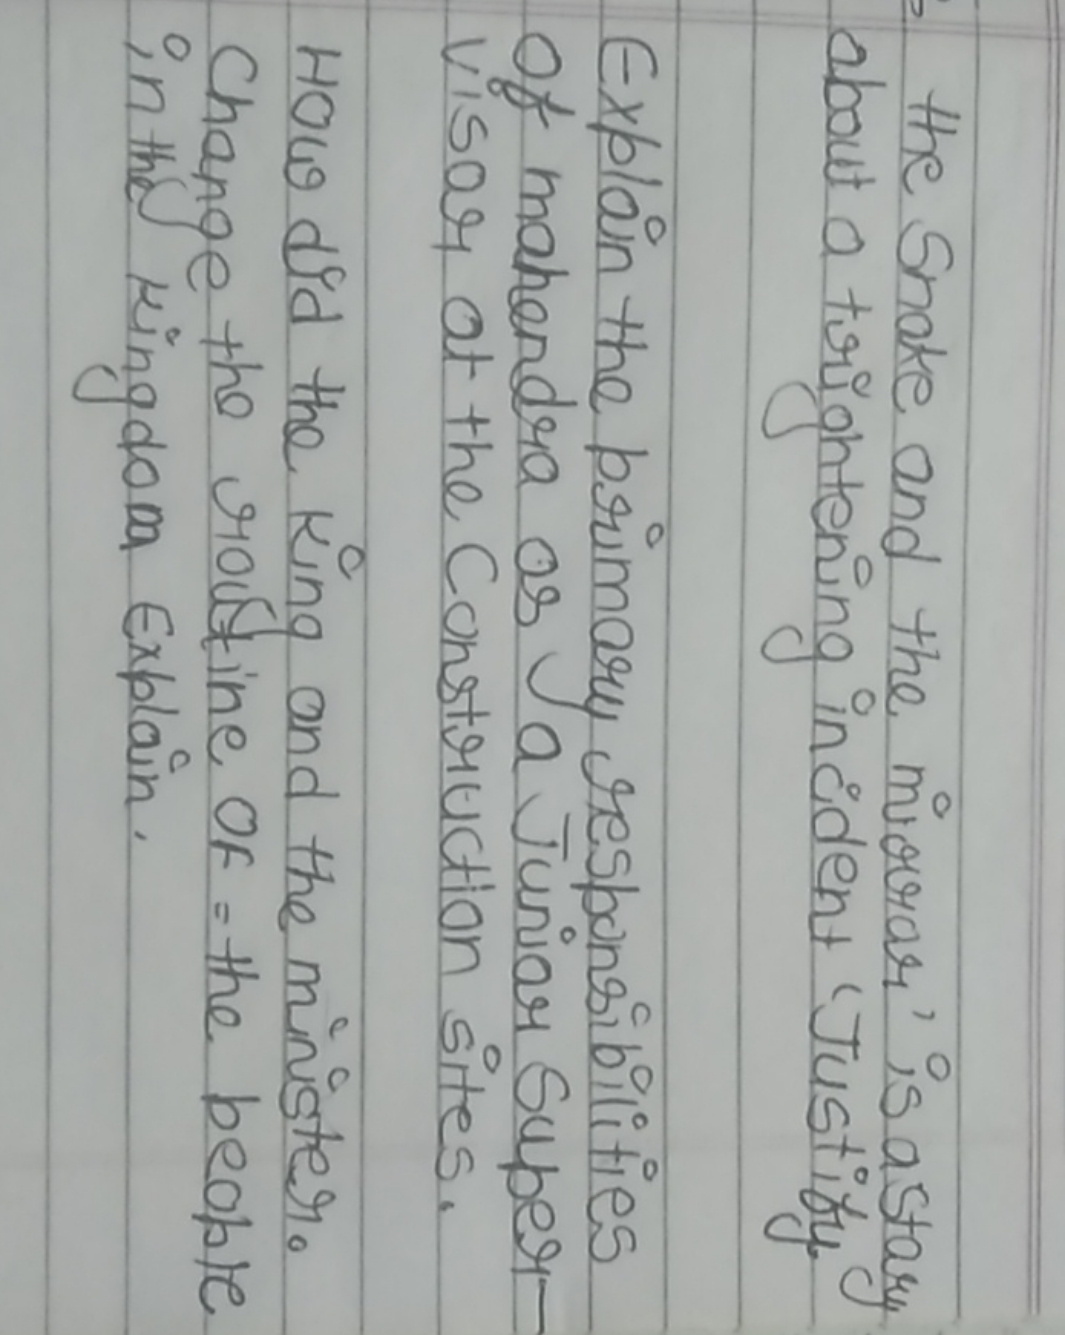 the Snake and the mirror' is a story
about a frightening incident (Justify.
Explain the primary responsibilities
Of mahendra as a Junior Super-
visor at the Construction sites.
How did the king and the minister.
Change the routine OF = the people
in the kingdom Explain.